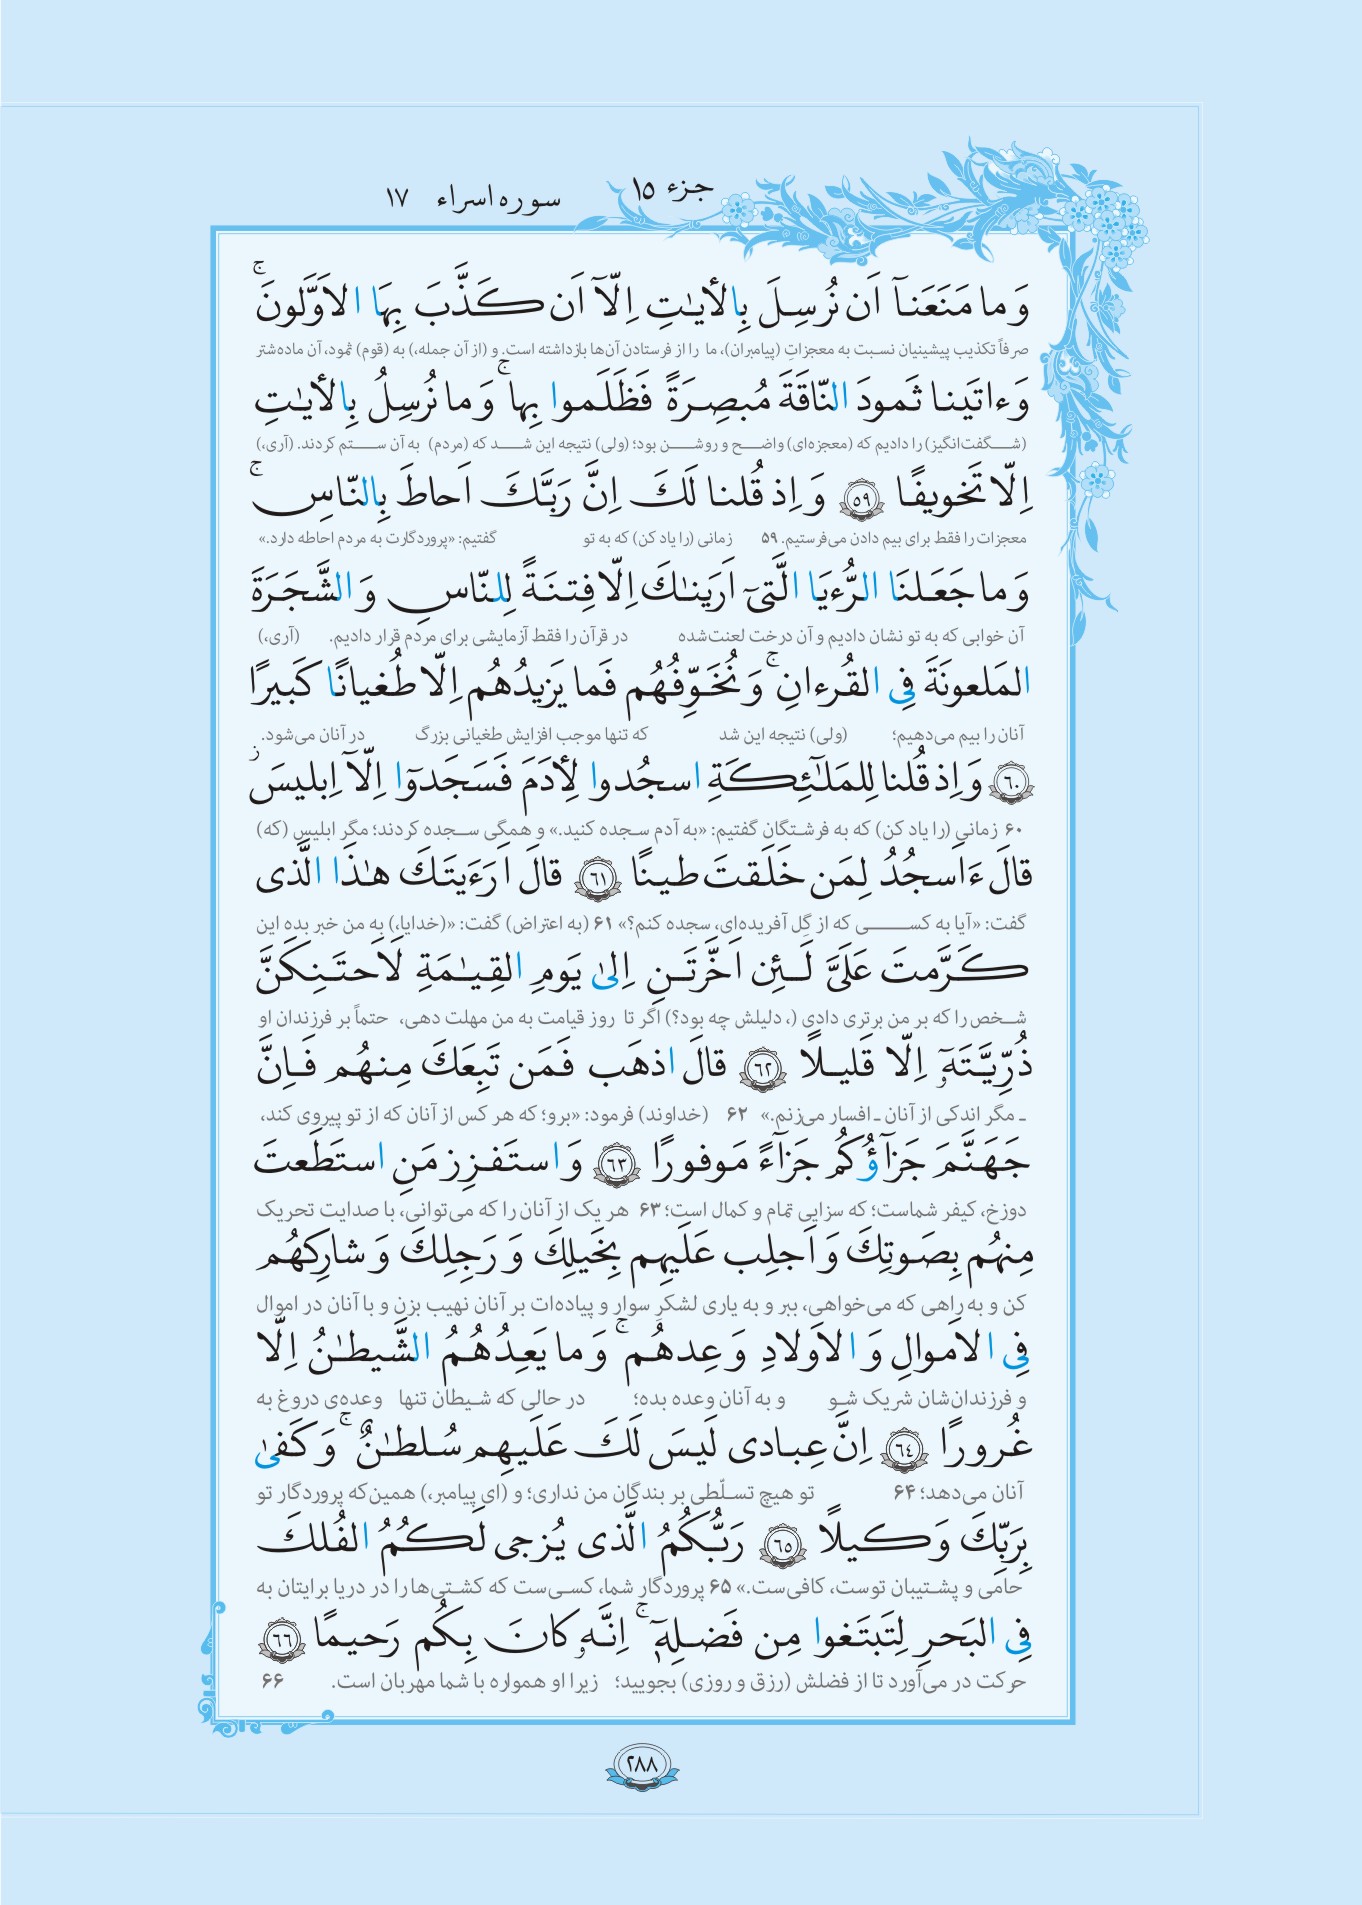 جزء ۱۵
سوره اسراء ۱۷
وَ ما مَنَعَنآ اَن نُرسِلَ بِالأیٰتِ اِلّآ اَن کَذَّبَ بِهَا الاَوَّلونَ ۚ
صرفاً تکذیب پیشینیان نسبت به معجزاتِ (پیامبران)، ما را از فرستادن آن‌ها بازداشته است. و (از آن جمله،) به (قوم) ثمود، آن ماده‌شتر
وَ ءاتَینا ثَمودَ النّاقَةَ مُبصِرَةً فَظَلَموا بِها ۚ وَ ما نُرسِلُ بِالأیٰتِ
(شگفت‌انگیز) را دادیم که (معجزه‌ای) واضح و روشن بود؛ (ولی) نتیجه این شد که (مردم) به آن ستم کردند. (آری،)
اِلّا تَخویفًا ﴿٥٩﴾ وَ اِذ قُلنا لَكَ اِنَّ رَبَّكَ اَحاطَ بِالنّاسِ ۚ
معجزات را فقط برای بیم دادن می‌فرستیم. ۵۹ زمانی (را یاد کن) که به تو گفتیم: «پروردگارت به مردم احاطه دارد.»
وَ ما جَعَلنَا الرُّءیَا الَّتیٓ اَرَینٰكَ اِلّا فِتنَةً لِلنّاسِ وَ الشَّجَرَةَ
آن خوابی که به تو نشان دادیم و آن درخت لعنت‌شده در قرآن را فقط آزمایشی برای مردم قرار دادیم. (آری،)
المَلعونَةَ فِی القُرءانِ ۚ وَ نُخَوِّفُهُم فَما یَزیدُهُم اِلّا طُغیانًا کَبیرًا
آنان را بیم می‌دهیم؛ (ولی) نتیجه این شد که تنها موجب افزایش طغیانی بزرگ در آنان می‌شود.
﴿٦٠﴾ وَ اِذ قُلنا لِلمَلٰٓئِکَةِ اسجُدوا لِأدَمَ فَسَجَدوٓا اِلّآ اِبلیسَ ز
۶۰ زمانی (را یاد کن) که به فرشتگان گفتیم: «به آدم سجده کنید.» و همگی سجده کردند؛ مگر ابلیس (که)
قالَ ءَاَسجُدُ لِمَن خَلَقتَ طینًا ﴿٦١﴾ قالَ اَرَءَیتَكَ هٰذَا الَّذی
گفت: «آیا به کسی که از گِل آفریده‌ای، سجده کنم؟» ۶۱ (به اعتراض) گفت: «(خدایا،) به من خبر بده این
کَرَّمتَ عَلَیَّ لَئِن اَخَّرتَنِ اِلیٰ یَومِ القِیٰمَةِ لَاَحتَنِکَنَّ
شخص را که بر من برتری دادی (، دلیلش چه بود؟) اگر تا روز قیامت به من مهلت دهی، حتماً بر فرزندان او
ذُرِّیَّتَهٗٓ اِلّا قَلیلًا ﴿٦٢﴾ قالَ اذهَب فَمَن تَبِعَكَ مِنهُم فَاِنَّ
ـ مگر اندکی از آنان ـ افسار می‌زنم.» ۶۲ (خداوند) فرمود: «برو؛ که هر کس از آنان که از تو پیروی کند،
جَهَنَّمَ جَزآؤُکُم جَزآءً مَوفورًا ﴿٦٣﴾ وَ استَفزِز مَنِ استَطَعتَ
دوزخ، کیفر شماست؛ که سزایی تمام و کمال است؛ ۶۳ هر یک از آنان را که می‌توانی، با صدایت تحریک
مِنهُم بِصَوتِكَ وَ اَجلِب عَلَیهِم بِخَیلِكَ وَ رَجِلِكَ وَ شارِکهُم
کن و به راهی که می‌خواهی، ببر و به یاری لشکرِ سوار و پیاده‌ات بر آنان نهیب بزن و با آنان در اموال
فِی الاَموالِ وَ الاَولادِ وَ عِدهُم ۚ وَ ما یَعِدُهُمُ الشَّیطٰنُ اِلّا
و فرزندان‌شان شریک شو و به آنان وعده بده؛ در حالی که شیطان تنها وعده‌ی دروغ به
غُرورًا ﴿٦٤﴾ اِنَّ عِبادی لَیسَ لَكَ عَلَیهِم سُلطٰنٌ ۚ وَ کَفیٰ
آنان می‌دهد؛ ۶۴ تو هیچ تسلّطی بر بندگان من نداری؛ و (ای پیامبر،) همین‌که پروردگار تو
بِرَبِّكَ وَکیلًا ﴿٦٥﴾ رَبُّکُمُ الَّذی یُزجی لَکُمُ الفُلكَ
حامی و پشتیبان توست، کافی‌ست.» ۶۵ پروردگار شما، کسی‌ست که کشتی‌ها را در دریا برایتان به
فِی البَحرِ لِتَبتَغوا مِن فَضلِهٖٓ ۚ اِنَّهٗ کانَ بِکُم رَحیمًا ﴿٦٦﴾
حرکت در می‌آورد تا از فضلش (رزق و روزی) بجویید؛ زیرا او همواره با شما مهربان است. ۶۶
۲۸۸